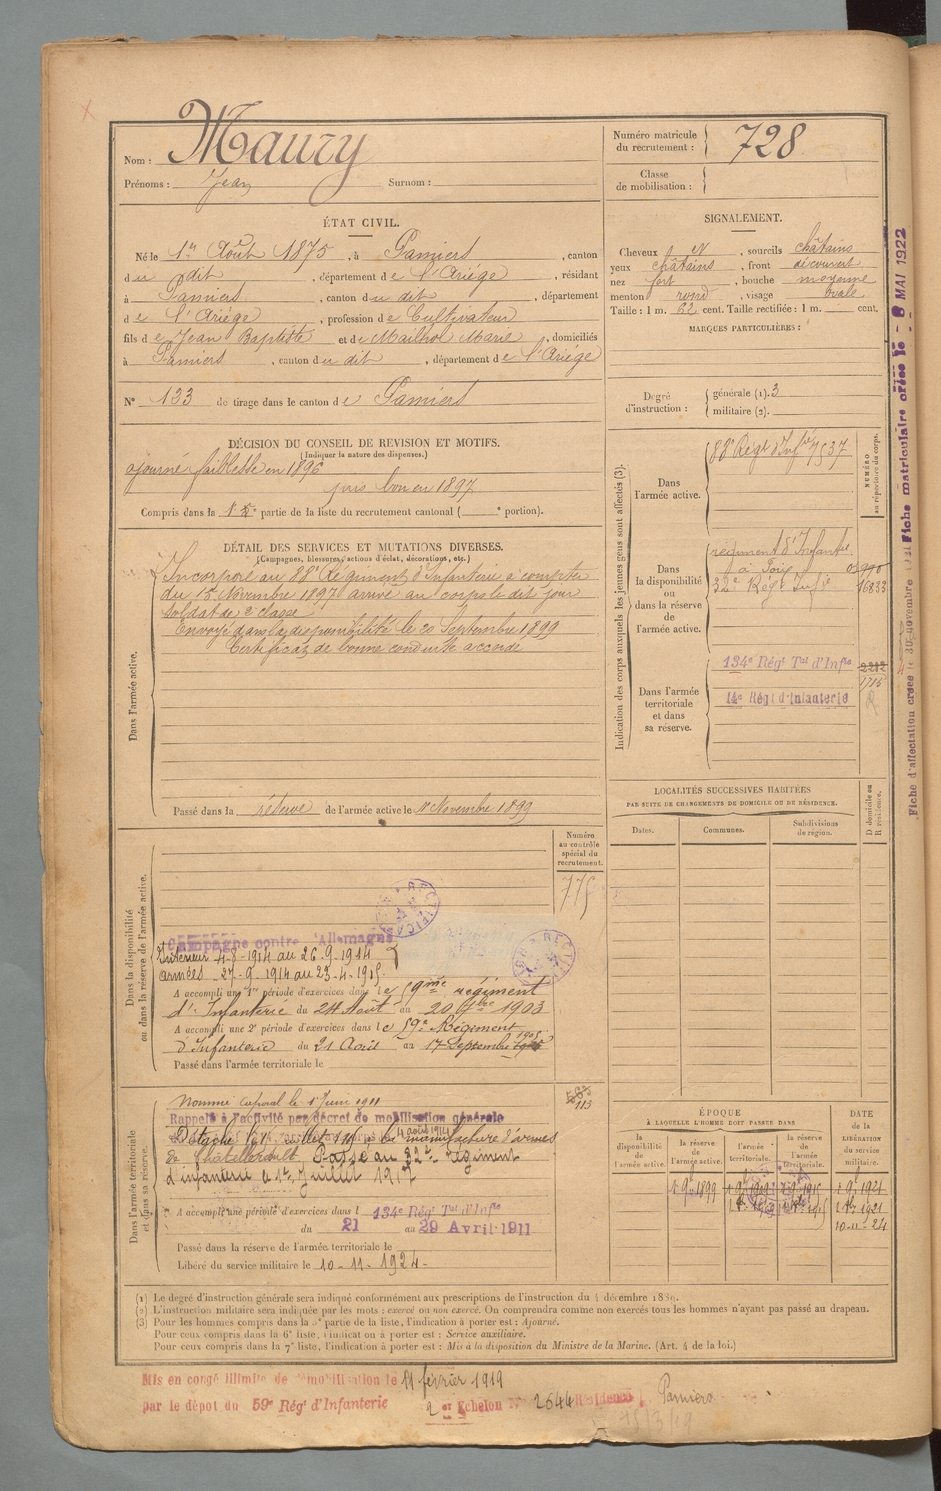 Maury
Nom :
Prénoms : Jean Surnom :
Numéro matricule du recrutement : 728
Classe de mobilisation :
ÉTAT CIVIL.
Né le 1er Août 1875, à Pamiers, canton
du dit, département de l'Ariège, résidant
à Pamiers, canton du dit, département
de l'Ariège, profession de Cultivateur
fils de Jean Baptiste et de Mailhol Marie, domiciliés
à Pamiers, canton du dit, département de l'Ariège
N° 123 de tirage dans le canton de Pamiers
SIGNALEMENT.
Cheveux et, sourcils châtains
yeux châtains, front découvert
nez fort, bouche moyenne
menton rond, visage ovale
Taille : 1 m. 62 cent. Taille rectifiée : 1 m. cent.
MARQUES PARTICULIÈRES :
Degré d'instruction : générale (1). 3
militaire (2).
DÉCISION DU CONSEIL DE REVISION ET MOTIFS.
(Indiquer la nature des dispenses.)
ajourné faiblesse en 1896
puis bon en 1897
Compris dans la partie de la liste du recrutement cantonal ( portion).
DÉTAIL DES SERVICES ET MUTATIONS DIVERSES.
(Campagnes, blessures, actions d'éclat, décorations, etc.)
Dans l'armée active.
Incorporé au 88e Régiment d'Infanterie à compter
du 15 Novembre 1897 arrivé au corps le dit jour
soldat de 2e classe
Envoyé dans la disponibilité le 20 Septembre 1899
Certificat de bonne conduite accordé
Passé dans la réserve de l'armée active le 1er Novembre 1899
Indication des corps auxquels les jeunes gens sont affectés (3).
NUMÉRO au répertoire du corps.
Dans l'armée active.
88e Régt d'Infie 7537
Dans la disponibilité ou dans la réserve de l'armée active.
régiment d'Infanterie
à Foix
32e Régt Infie 16833
Dans l'armée territoriale et dans sa réserve.
134e Régt Tal d'Infie 2212
1715
14e Régt d'Infanterie
LOCALITÉS SUCCESSIVES HABITÉES
PAR SUITE DE CHANGEMENTS DE DOMICILE OU DE RÉSIDENCE.
Dates.
Communes.
Subdivisions de région.
D domicile ou R résidence.
Numéro au contrôle spécial du recrutement.
775
Dans la disponibilité ou dans la réserve de l'armée active.
RECTIFICA
Campagne contre l'Allemagne
Intérieur 4-8-1914 au 26-9-1914
armées - 27-9-1914 au 23-4-1915
A accompli une 1re période d'exercices dans le 59me régiment
d'Infanterie du 24 Août au 20 7bre 1903
A accompli une 2e période d'exercices dans le 59e Régiment
d'Infanterie du 21 Août au 17 Septembre 1905
Passé dans l'armée territoriale le
Dans l'armée territoriale et dans sa réserve.
Nommé caporal le 1er Juin 1911
113
Rappelé à l'activité par décret de mobilisation générale
4 août 1914
manufacture d'armes
de Châtellerault. Passé au 32e régiment
d'infanterie le 1er Juillet 1917
A accompli une période d'exercices dans l 134e Régt Tal d'Infie
du 21 au 29 Avril 1911
Passé dans la réserve de l'armée territoriale le
Libéré du service militaire le 10-11-1924-
ÉPOQUE
À LAQUELLE L'HOMME DOIT PASSER DANS
la disponibilité de l'armée active.
la réserve de l'armée active.
l'armée territoriale.
la réserve de l'armée territoriale.
DATE de la LIBÉRATION du service militaire.
10-11-24
(1) Le degré d'instruction générale sera indiqué conformément aux prescriptions de l'instruction du 4 décembre 1889.
(2) L'instruction militaire sera indiquée par les mots : exercé ou non exercé. On comprendra comme non exercés tous les hommes n'ayant pas passé au drapeau.
(3) Pour les hommes compris dans la 5e partie de la liste, l'indication à porter est : Ajourné.
Pour ceux compris dans la 6e liste, l'indication à porter est : Service auxiliaire.
Pour ceux compris dans la 7e liste, l'indication à porter est : Mis à la disposition du Ministre de la Marine. (Art. 4 de la loi.)
Mis en congé illimité de démobilisation le 11 février 1919
par le dépôt du 59e Régt d'Infanterie 2 Echelon N° 2644 Résidence Pamiers
Fiche matriculaire créée le - 8 MAI 1922
Fiche d'affectation créée le 30 novembre